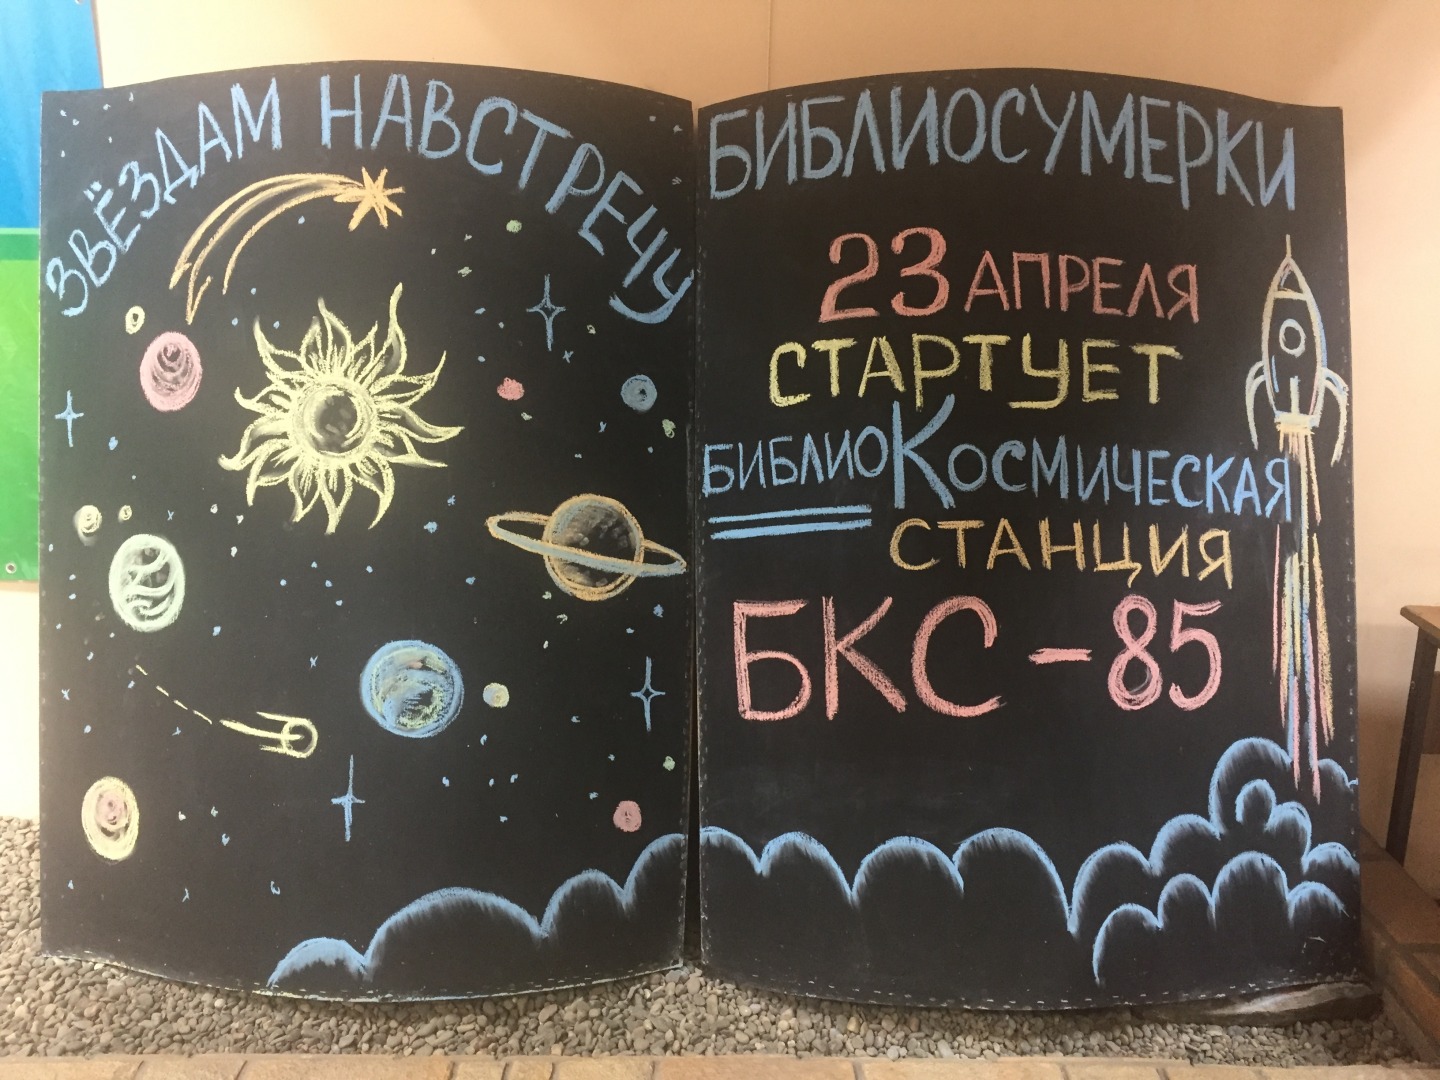 ЗВЁЗДАМ НАВСТРЕЧУ
БИБЛИОСУМЕРКИ
23 АПРЕЛЯ
СТАРТУЕТ
БИБЛИОКОСМИЧЕСКАЯ
СТАНЦИЯ
БКС-85